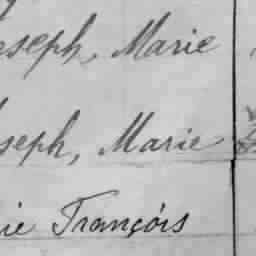 oseph, Marie
seph, Marie
ie François